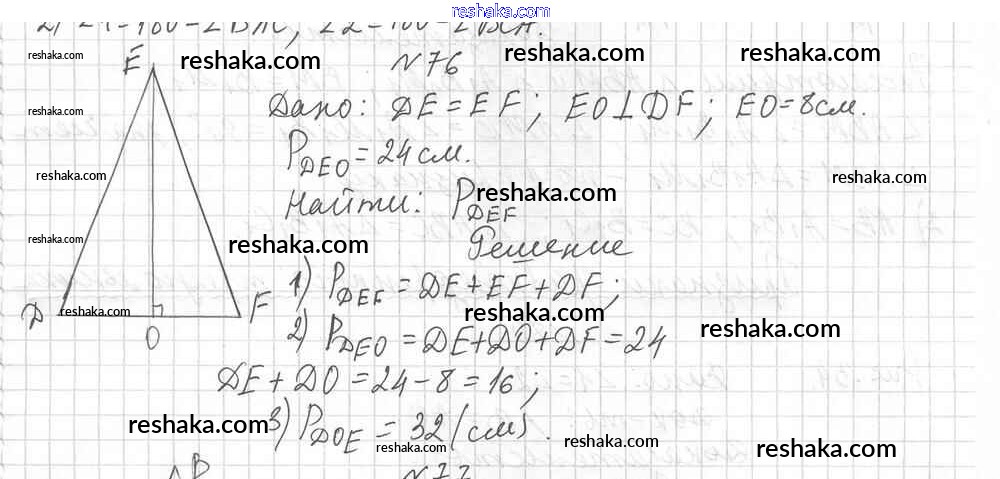 reshaka.com
2) ∠1=180-∠BAC; ∠2=180-∠BCA.
reshaka.com
E reshaka.com N76 reshaka.com reshaka.com
reshaka.com Дано: DE=EF; EO⊥DF; EO=8см.
P_DEO=24см.
reshaka.com reshaka.com reshaka.com
Найти: P_DEF
reshaka.com reshaka.com Решение
1) P_DEF=DE+EF+DF;
D reshaka.com F reshaka.com reshaka.com
O 2) P_DEO=DE+DO+DF=24
DE+DO=24-8=16;
reshaka.com 3) P_DOE=32(см). reshaka.com reshaka.com
B N77